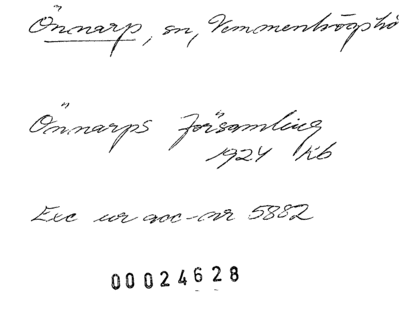 Önnarp, sn, Vemmenhögs hd
Önnarps församling
1924 Kb
Exc ur acc-nr 5882
00024628